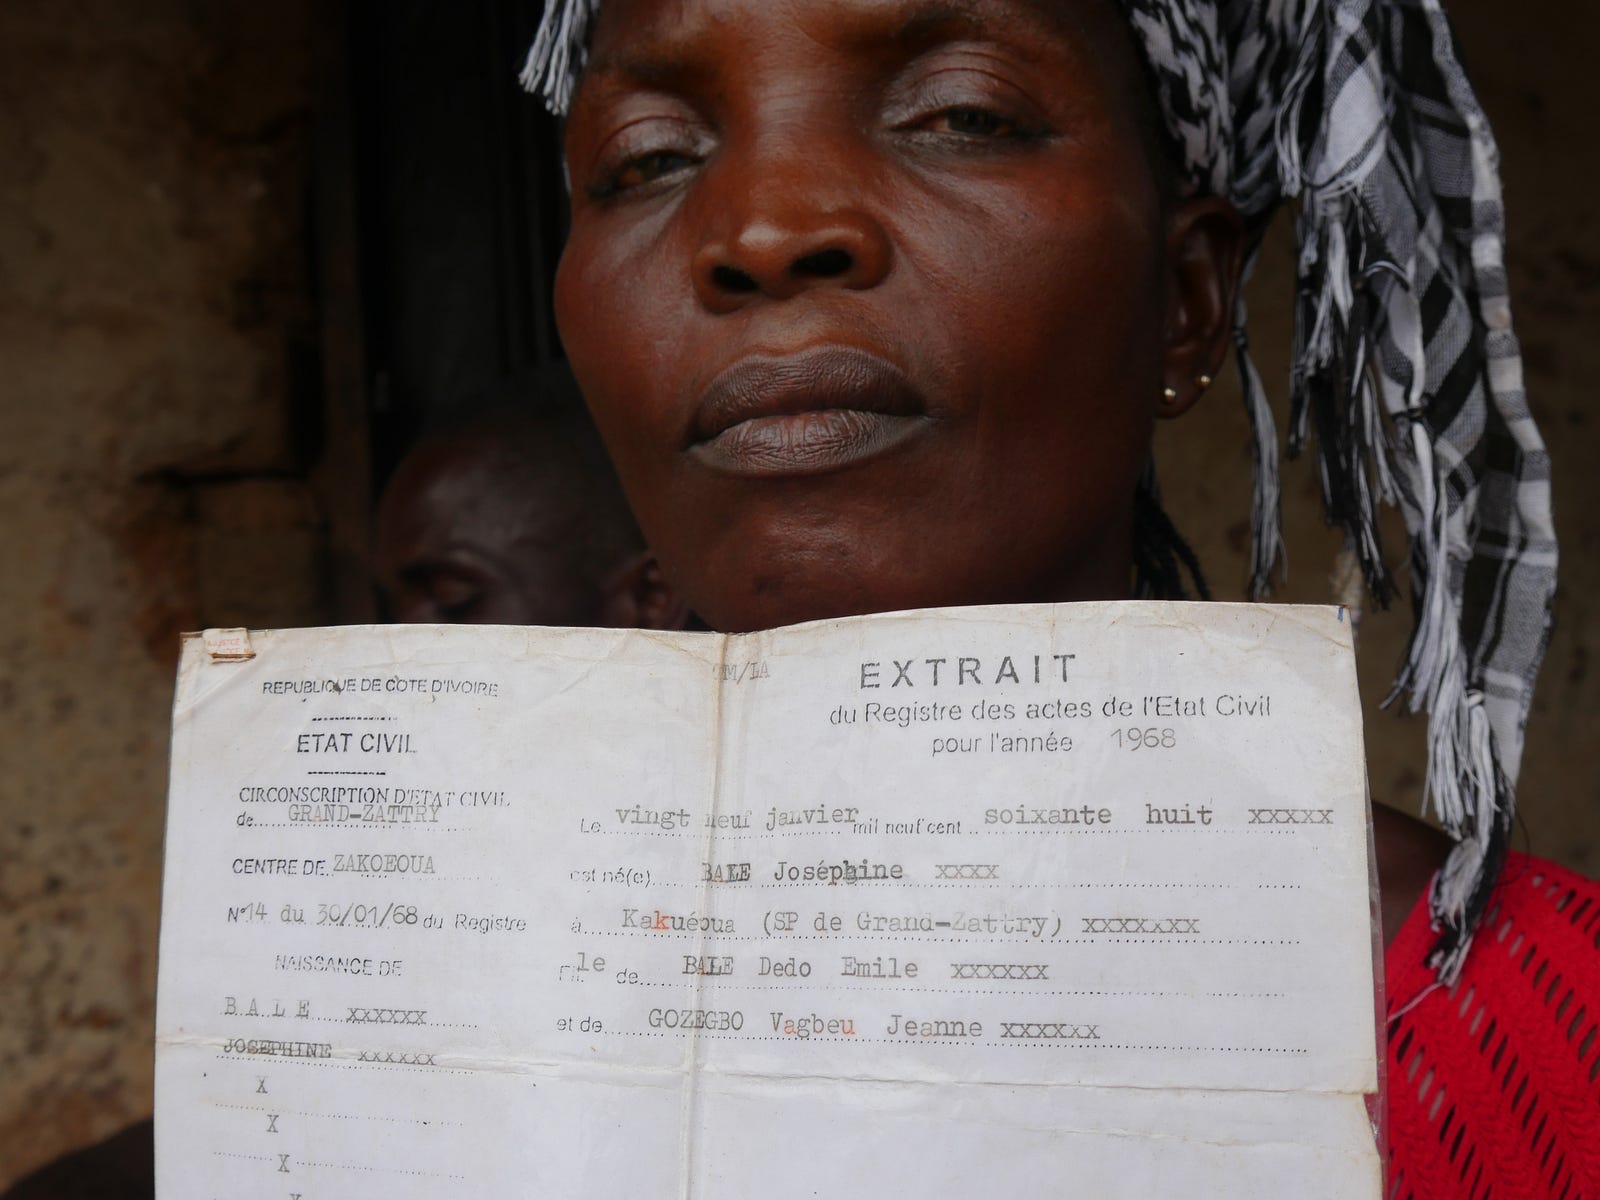 REPUBLIQUE DE COTE D'IVOIRE
ETAT CIVIL
CIRCONSCRIPTION D'ETAT CIVIL
de GRAND-ZATTRY
CENTRE DE ZAKOEOUA
N°14 du 30/01/68 du Registre
NAISSANCE DE
BALE xxxxxx
JOSEPHINE xxxxxx
X
X
X
X
M/LA
EXTRAIT
du Registre des actes de l'Etat Civil
pour l'année 1968
Le vingt neuf janvier mil neuf cent soixante huit xxxxx
est né(e) BALE Joséphine xxxx
à Kakuéoua (SP de Grand-Zattry) xxxxxxx
Fille de BALE Dedo Emile xxxxxx
et de GOZEGBO Vagbeu Jeanne xxxxxx